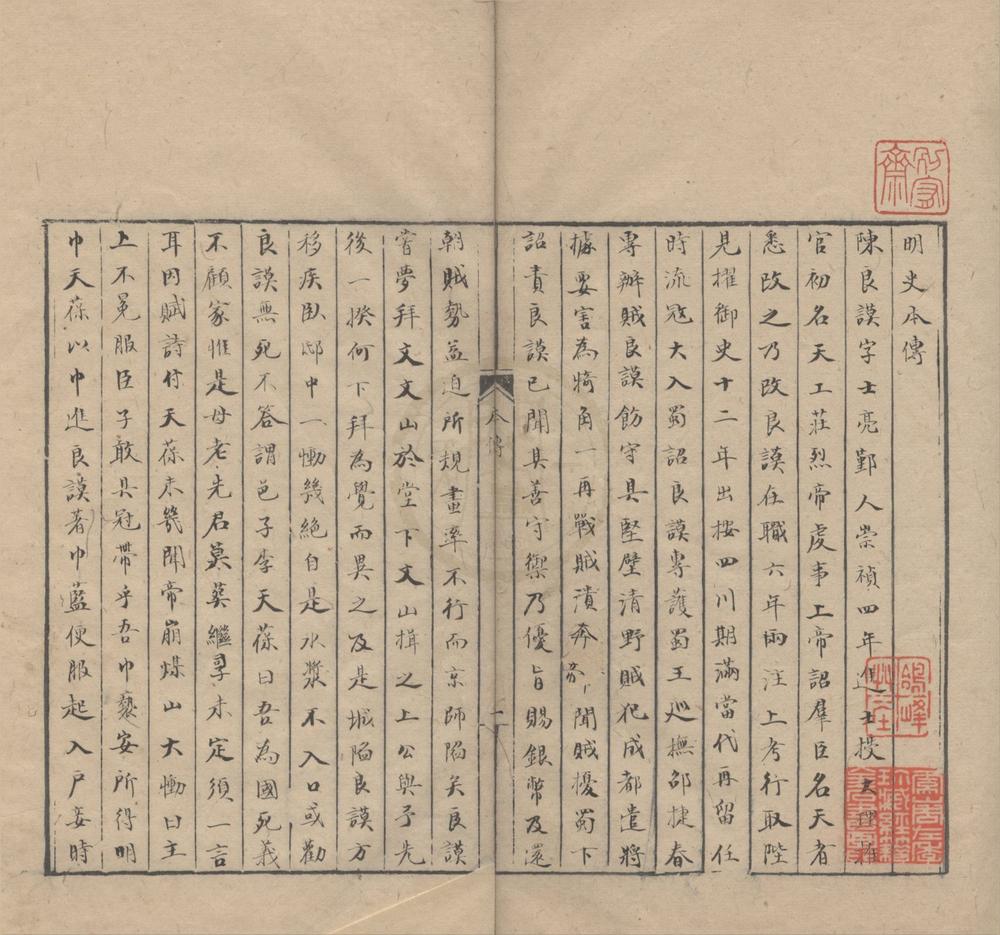 明史本傳
陳良謨字士亮鄞人崇禎四年進士授大理推
官初名天工莊烈帝虔事上帝詔羣臣名天者
悉改之乃改良謨在職六年兩注上考行取陛
見擢御史十二年出按四川期滿當代再留任
時流冦大入蜀詔良謨專護蜀王巡撫邵捷春
專辦賊良謨飭守具堅壁清野賊犯成都遣將
據要害為犄角一再戰賊潰奔
聞賊擾蜀下
詔責良謨已聞其善守禦乃優旨賜銀幣及還
朝賊勢益迫所規畫率不行而京師陷矣良謨
嘗夢拜文文山於堂下文山揖之上公與予先
後一揆何下拜為覺而異之及是城陷良謨方
移疾臥邸中一慟幾絕自是水漿不入口或勸
良謨無死不答謂邑子李天葆曰吾為國死義
不顧家惟是母老先君莫葵繼孠未定須一言
耳因賦詩付天葆未幾聞帝崩煤山大慟曰主
上不冕服臣子敢具冠帶乎吾巾褻安所得明
巾天葆以巾進良謨著巾藍便服起入戶妾時
本傳
一